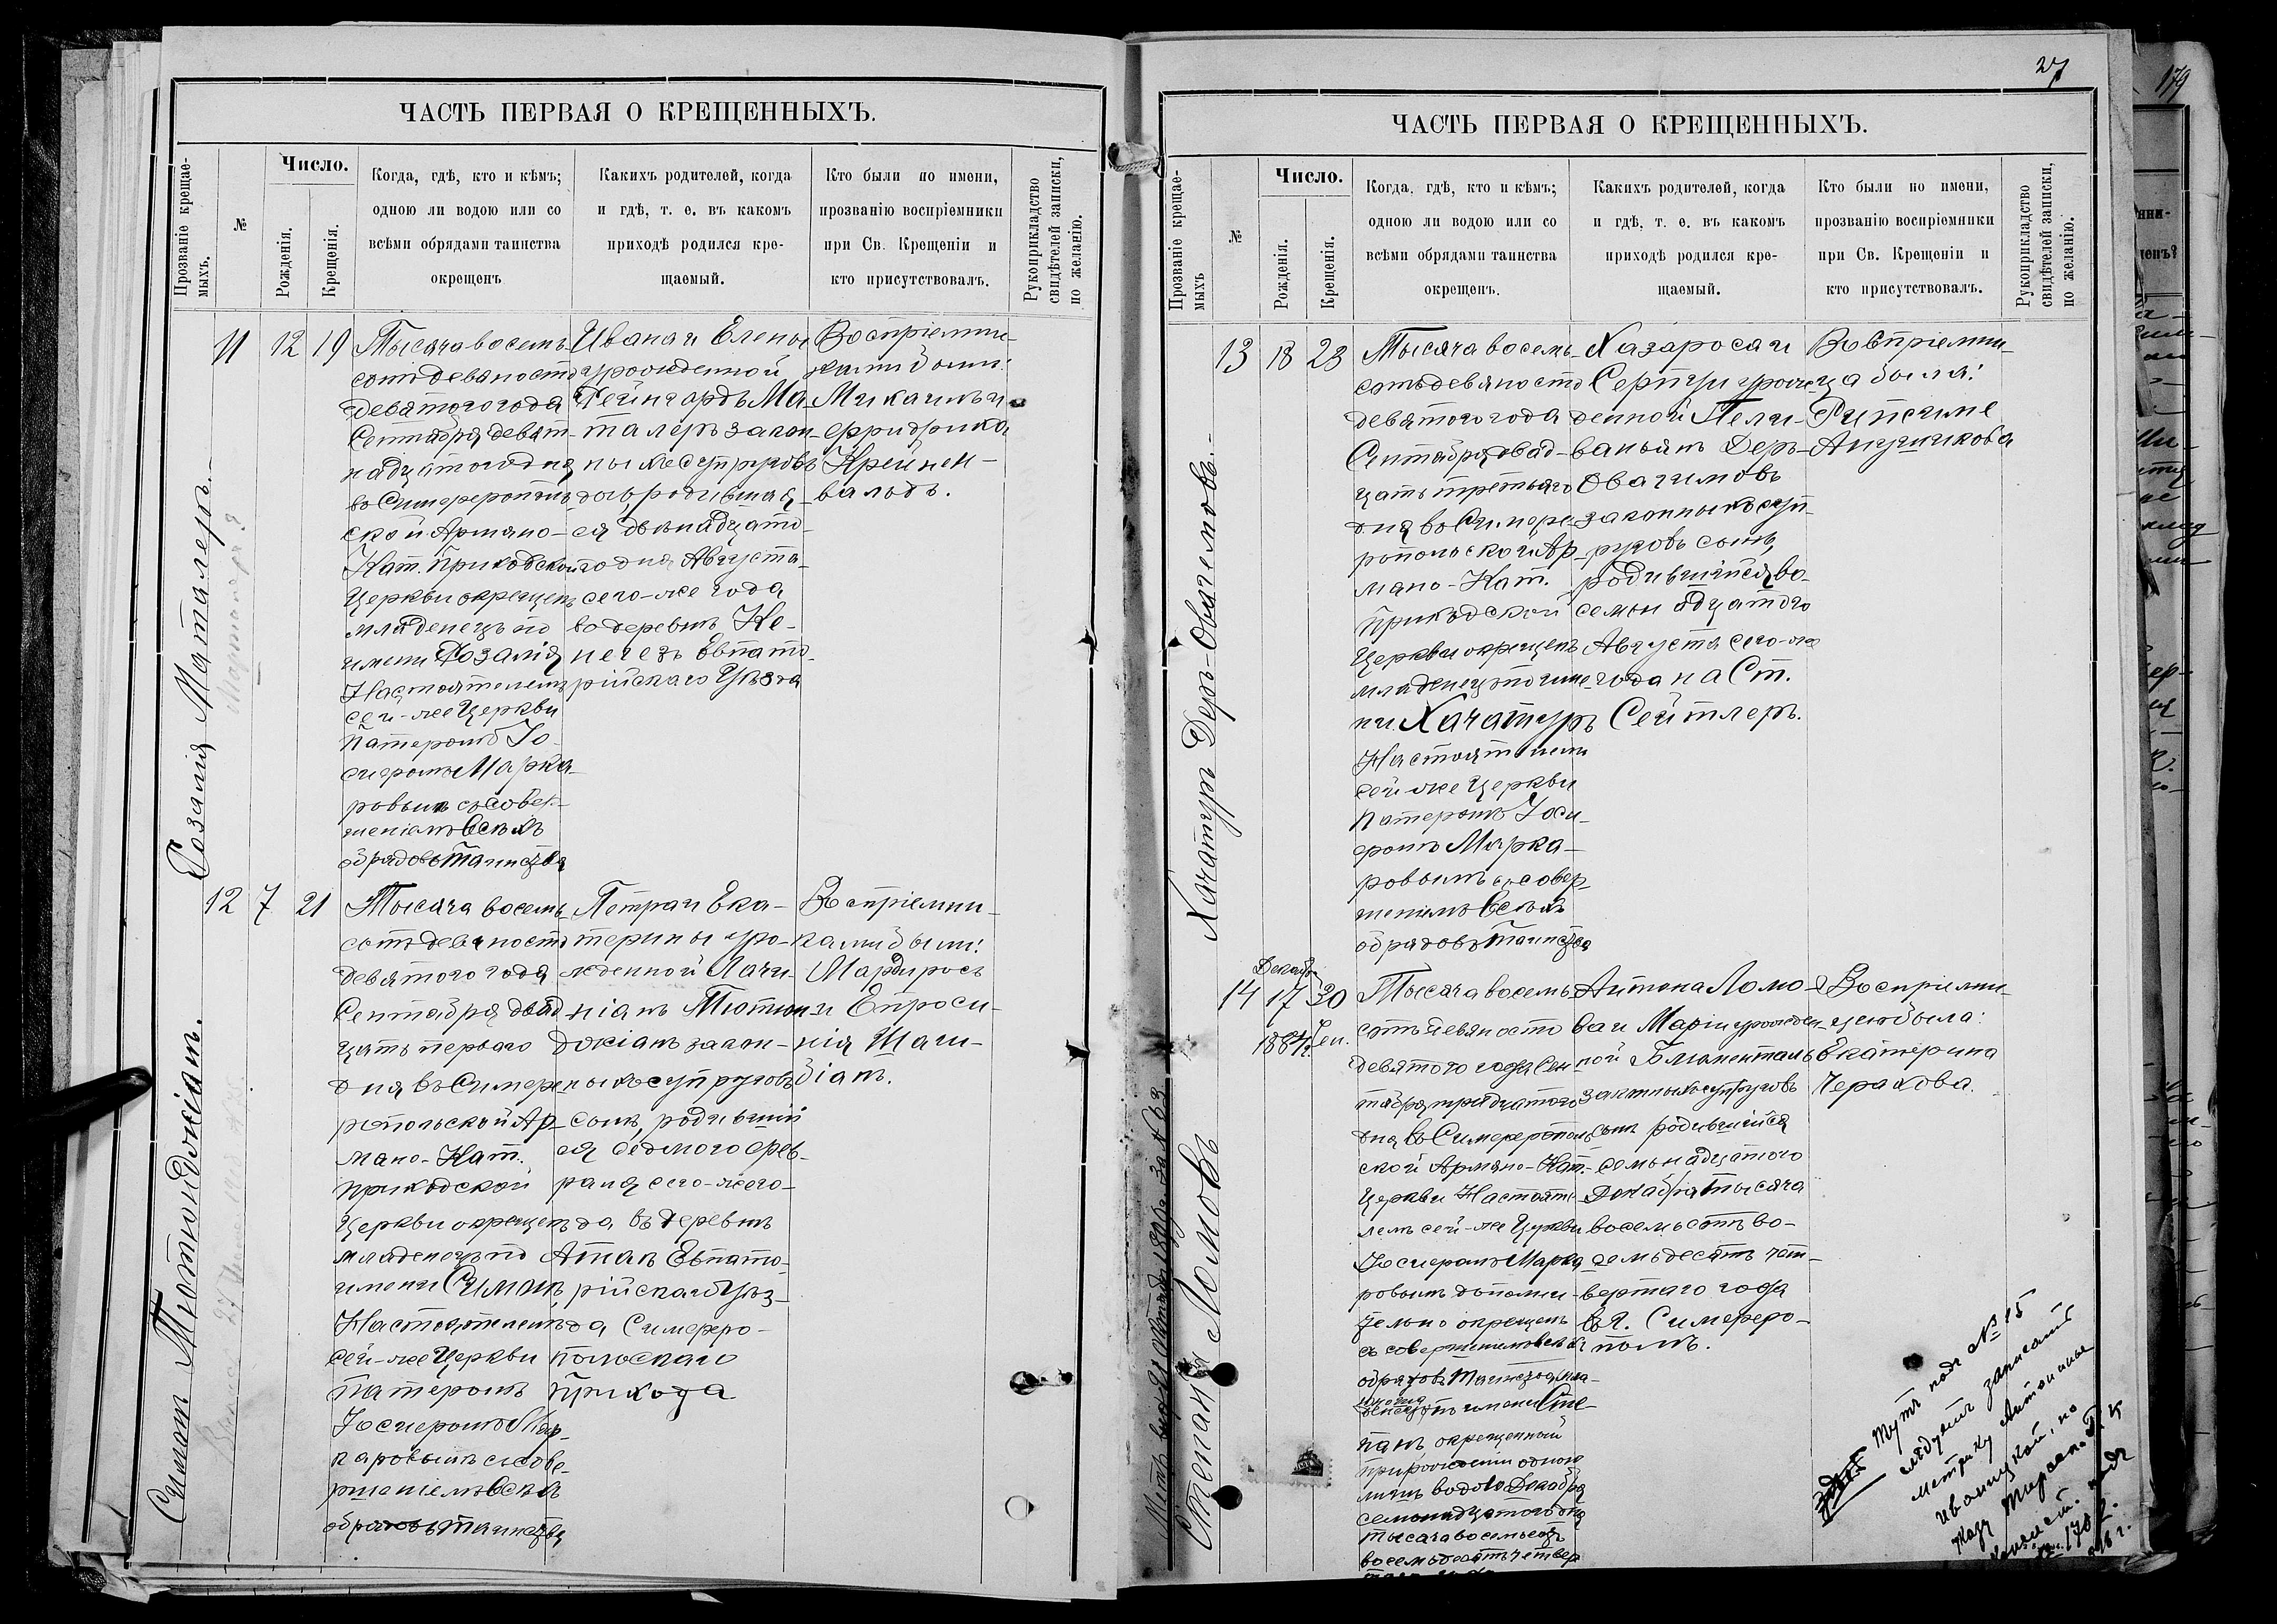 ЧАСТЬ ПЕРВАЯ О КРЕЩЕННЫХЪ.
Прозваніе крещае-
мыхъ.
№
Число.
Рожденія.
Крещенія.
Когда, гдѣ, кто и кѣмъ;
одною ли водою или со
всѣми обрядами таинства
окрещенъ
Какихъ родителей, когда
и гдѣ, т. е. въ какомъ
приходѣ родился кре-
щаемый.
Кто были по имени,
прозванію воспріемники
при Св. Крещеніи и
кто присутствовалъ.
Рукоприкладство
свидѣтелей записки,
по желанію.
Розалія Маталеръ.
11
12
19
Тысяча восемь-
сотъ девяносто
девятого года
Сентября девят-
надцатого дня
въ Симферополь-
ской Армяно-
Кат. Приходской
Церкви окрещенъ
младенецъ по
имени Розалія
Настоятелемъ
сей-же Церкви
Патеромъ Іо-
сифомъ Марка-
ровымъ съ совер-
шеніемъ всѣхъ
обрядовъ Таинства
Ивана и Елены
урожденной
Рейнгардъ Ма-
талеръ закон-
ныхъ супруговъ
дочь, родившая-
ся двѣнадцато-
го дня Августа
сего-же года
въ деревнѣ Ке-
негезъ Евпато-
рійскаго Уѣзда
Воспріемни-
ками были:
Михаилъ и
Фридрика
Крейнен-
вальдъ.
Симонъ Тютюнджіанъ.
12
7
21
Тысяча восемь-
сотъ девяносто
девятого года
Сентября двад-
цать перваго
дня въ Симфе-
ропольской Ар-
мяно-Кат.
Приходской
Церкви окрещенъ
младенецъ по
имени Симонъ
Настоятелемъ
сей-же Церкви
Патеромъ
Іосифомъ Мар-
каровымъ съ сове-
ршеніемъ всѣхъ
обрядовъ Таинства
Петра и Ека-
терины уро-
жденной Лачи-
ніанъ Тютюн-
джіанъ закон-
ныхъ супруговъ
сынъ, родившій
ся седьмого Фев-
раля сего-же го-
да въ деревнѣ
Атанъ Евпато-
рійскаго Уѣз-
да Симферо-
польскаго
Прихода
Воспріемни-
ками были:
Мардиросъ
и Епроси-
нія Шаги-
біанъ.
27
ЧАСТЬ ПЕРВАЯ О КРЕЩЕННЫХЪ.
Прозваніе крещае-
мыхъ
№
Число.
Рожденія.
Крещенія.
Когда, гдѣ, кто и кѣмъ;
одною ли водою или со
всѣми обрядами таинства
окрещенъ.
Какихъ родителей, когда
и гдѣ, т. е. въ какомъ
приходѣ родился кре-
щаемый.
Кто были по имени,
прозванію воспріемники
при Св. Крещеніи и
кто присутствовалъ.
Рукоприкладство
свидѣтелей записки,
по желанію.
Хачатуръ Деръ-Овагимовъ.
13
18
23
Тысяча восемь-
сотъ девяносто
девятого года
Сентября двад-
цать третьяго
дня въ Симфе-
ропольской Ар-
мяно-Кат.
Приходской
Церкви окрещенъ
младенецъ по име-
ни Хачатуръ
Настоятелемъ
сей же Церкви
Патеромъ Іоси-
фомъ Марка-
ровымъ съ совер-
шеніемъ всѣхъ
обрядовъ Таинства
Хазароса и
Сертуи урож-
денной Пели-
ваньянъ Деръ-
Овагимовъ
законныхъ суп-
руговъ сынъ,
родившійся во-
семьнадцатого
Августа сего-же
года на Ст.
Сейтлеръ.
Воспріемни-
ца была:
Рипсиме
Анушикова
Степанъ Ломовъ
14
Декабр
17
1884
30
Сен.
Тысяча восемь-
сотъ девяносто
девятого года Сен-
тября тридцатого
дня въ Симферополь-
ской Армяно-Кат.
Церкви Настояте-
лемъ сей-же Церкви
Іосифомъ Марка-
ровымъ дополни-
тельно окрещенъ
съ совершеніемъ всѣхъ
обрядовъ Таинства мла-
денецъ по имени Сте-
панъ, окрещенный
при рожденіи одною
лишь водою Декабря
семнадцатого дня
тысяча восемьсотъ
восемьдесятъ четвер
Антона Ломо-
ва и Маріи урожден-
ной Блюменталь
законныхъ супруговъ
сынъ родившійся
семьнадцатого
Декабря тысяча
восемьсотъ во-
семьдесятъ чет-
вертаго года
въ г. Симферо-
полѣ.
Воспріемни-
цею была:
Екатерина
Черахова.
Тутъ подъ № 15
слѣдуетъ записать
метрику Антонины
Иваницкой, по